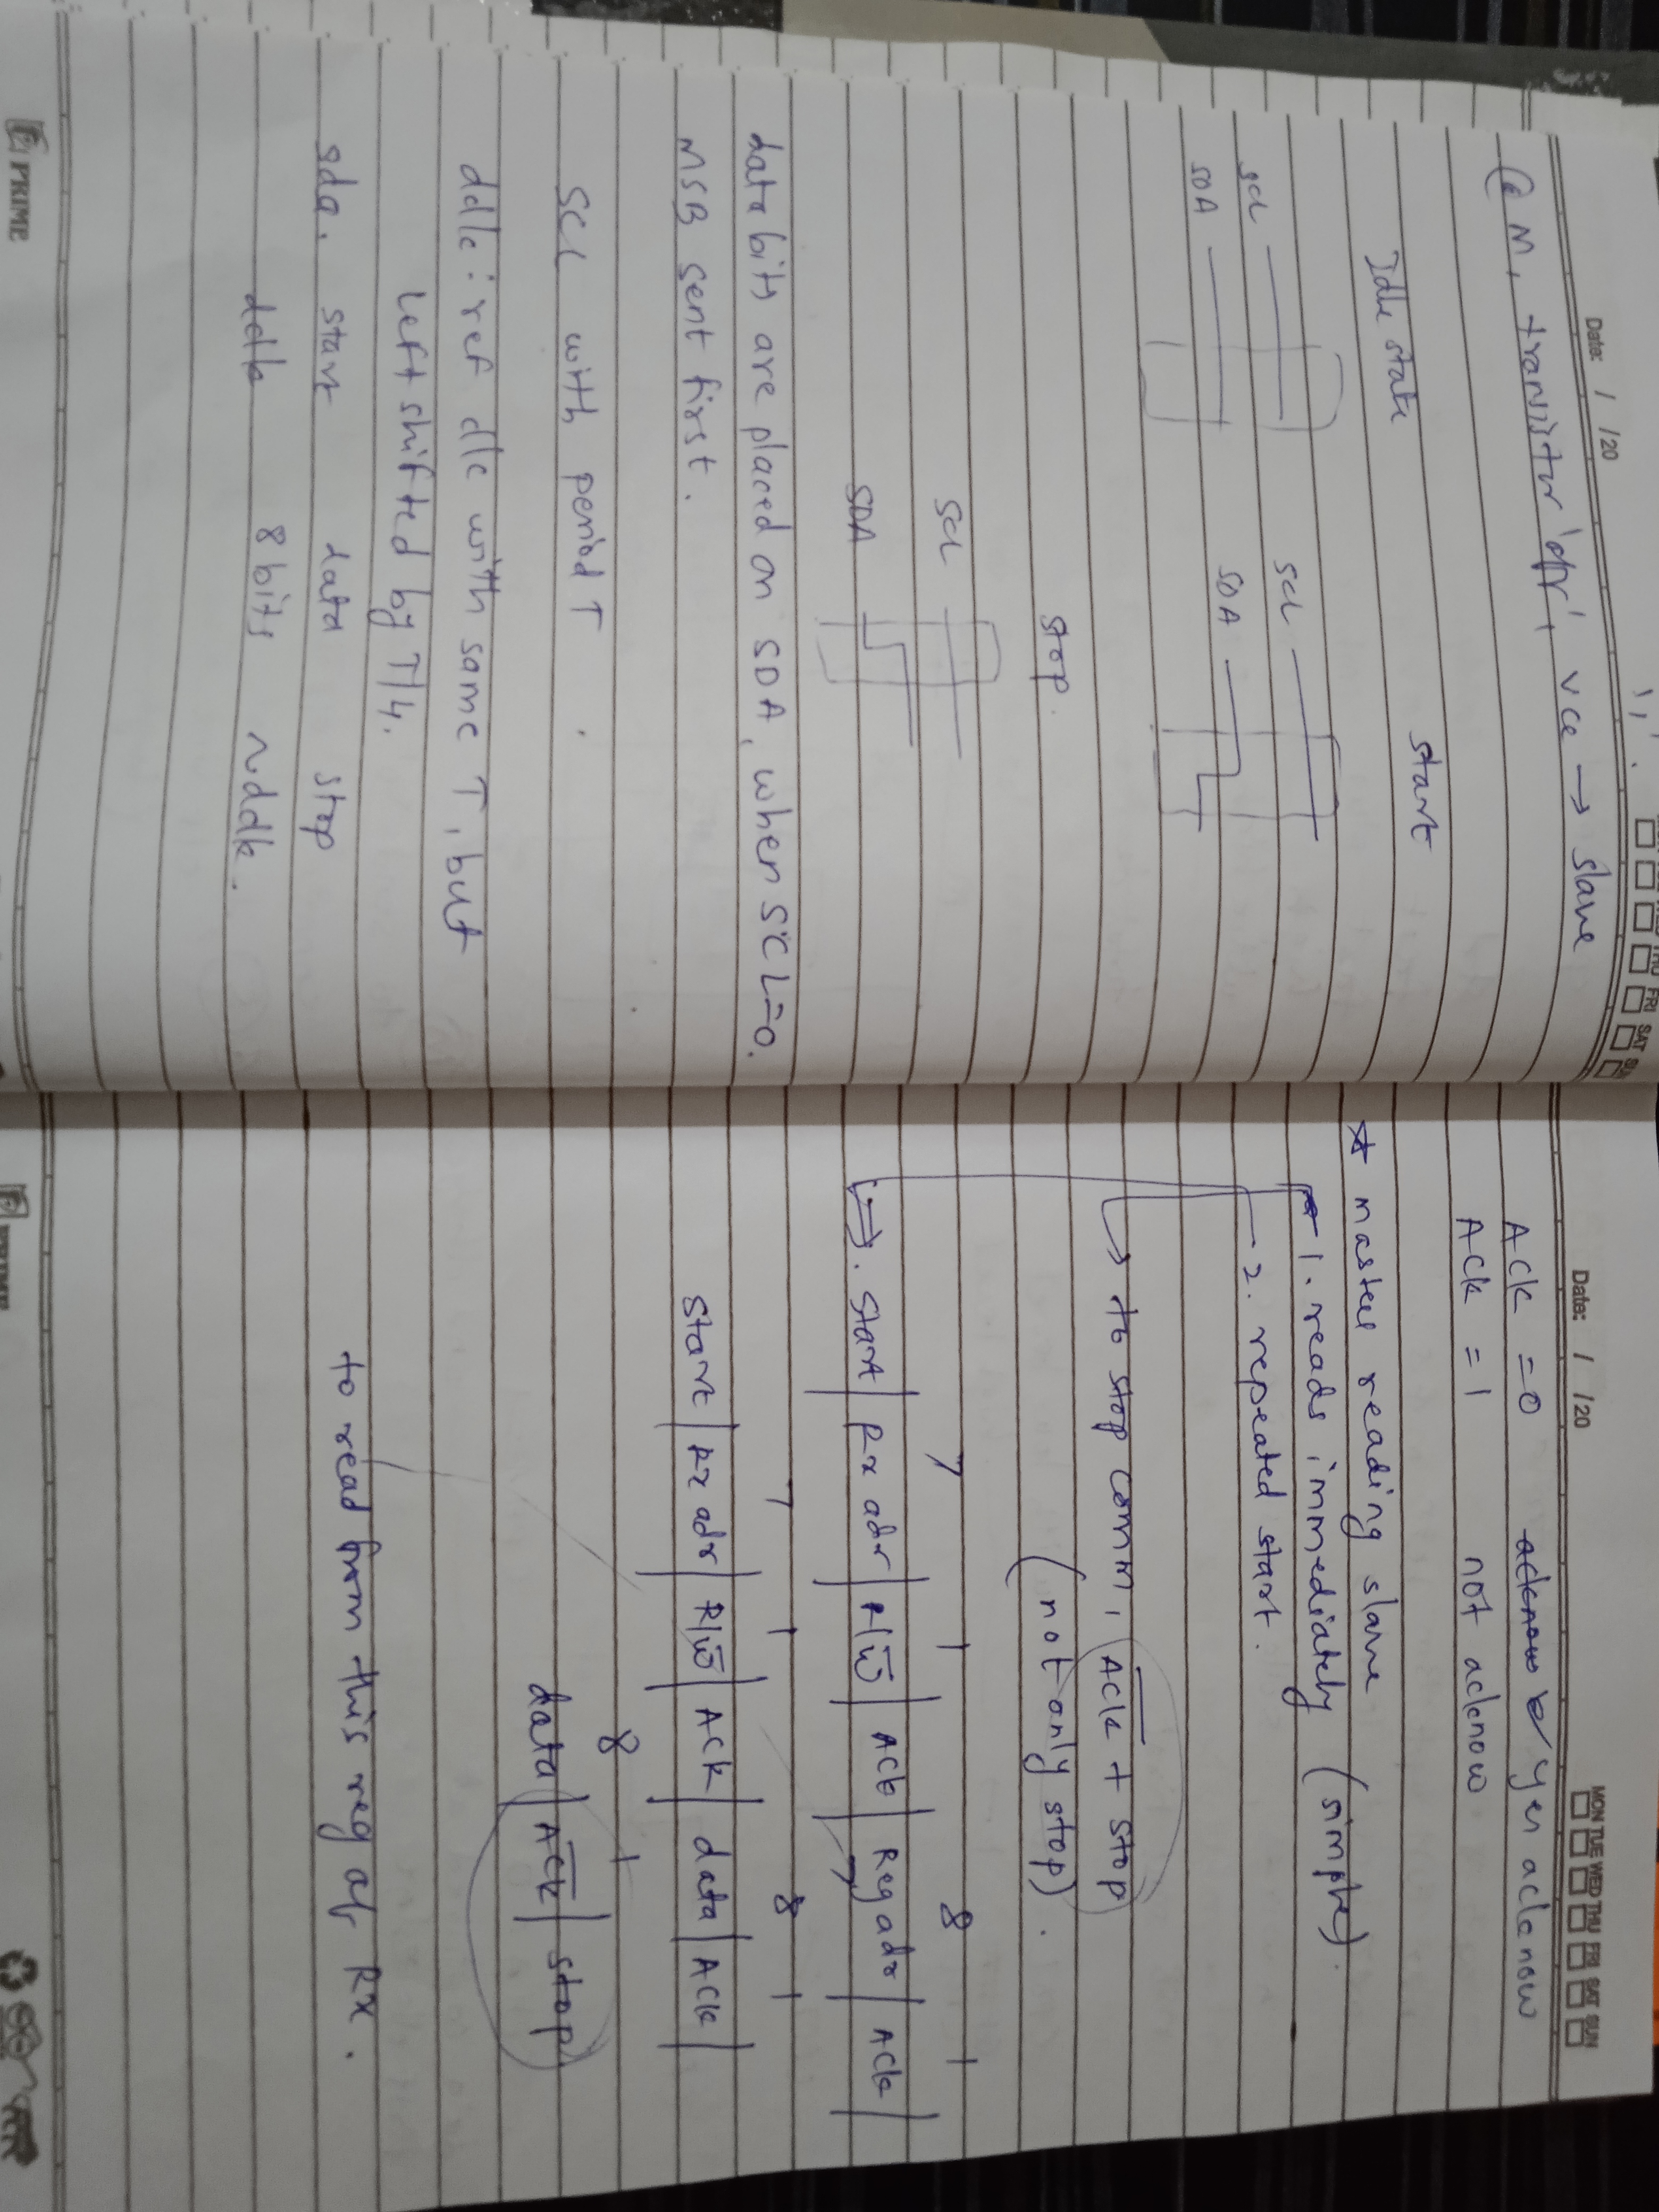 Date: / /20
THU FRI SAT SUN
@ M, transistor 'off', vcc → slave
Idle state start
SCL SCL
SDA SDA
stop.
SCL
SDA
data bits are placed on SDA, when SCL=0.
MSB sent first.
SCL with period T
ddlc: ref dlc with same T, but
left shifted by T/4.
sda. start data stop
8 bits
PRIME
Date: / /20
MON TUE WED THU FRI SAT SUN
ACK = 0 yes acknow
ACK = 1 not acknow
* master reading slave
1. reads immediately (simple).
2. repeated start.
↳ to stop comm, A̅C̅K̅ + stop
(not only stop).
7 1 8 1
→. start | Rx adr | R/W̅ | ACK | Reg adr | ACK |
7 1 8 1
start | Rx adr | R/W̅ | ACK | data | ACK |
8 1
data | A̅C̅K̅ | stop
to read from this reg of Rx.
PRIME